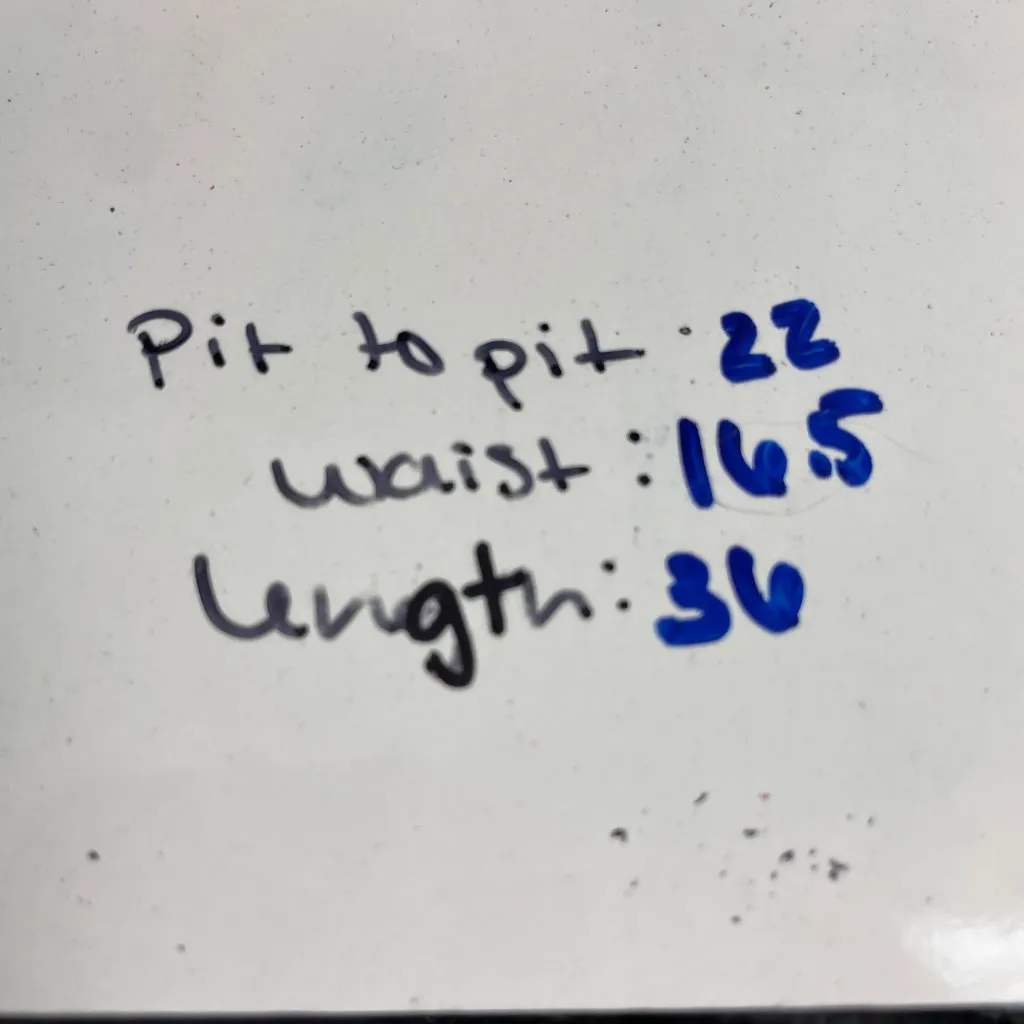 Pit to pit : 22
waist : 16.5
length : 36